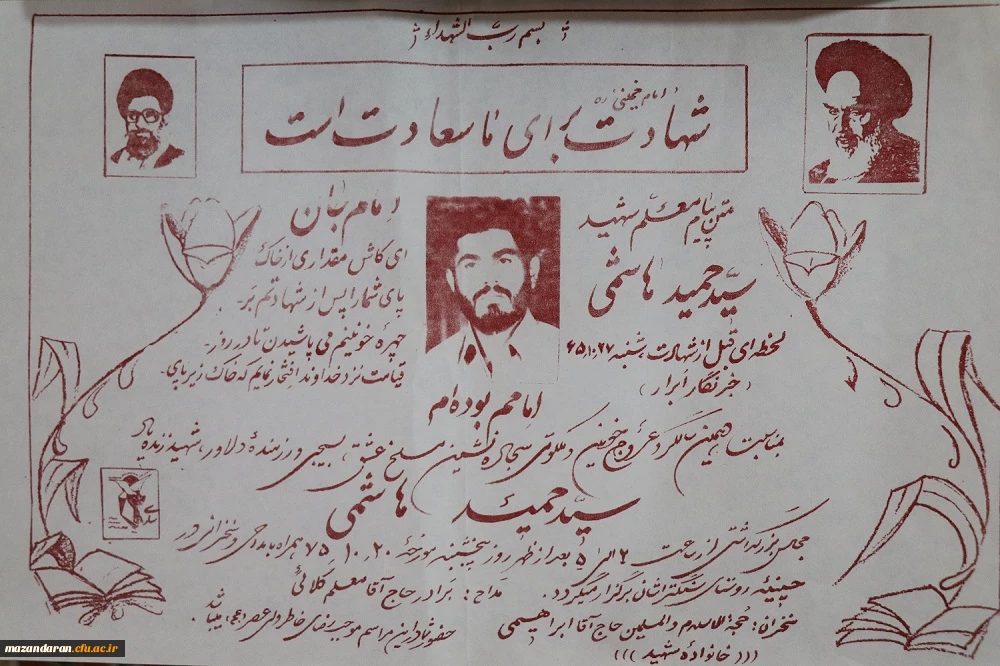 بسم رب الشهداء
امام خمینی ره
شهادت برای ما سعادت است
متن پیام معلم شهید
سید حمید هاشمی
لحظه‌ای قبل از شهادت شنبه ۶۵/۱۰/۲۷
(خبرنگار ابرار)
امام
ای کاش مقداری از خاک
پای شما را پس از شهادتم بر-
چهره خونینم می پاشیدن تا در روز-
قیامت نزد خداوند افتخار نمایم که خاک زیر پای-
امامم بوده‌ام
بمناسبت همین سالگرد عروج خونین و ملکوتی سجاده نشین مسلخ عشق، بسیجی و رزمندهٔ دلاور، شهید زنده یاد
سید حمید هاشمی
مجالس بزرگداشتی از ساعت ۲ الی ۵ بعد از ظهر روز پنجشنبه مورخهٔ ۷۵.۱۰.۲۰ همراه با مداحی و سخنرانی در
حسینیهٔ روستای سنگتراشان برگزار میگردد. مداح: برادر حاج آقا معلم کلائی
سخنران: حجة الاسلام والمسلمین حاج آقا ابراهیمی
حضور شما در این مراسم موجب رضای خاطر ولی عصر (عج) میباشد
(((خانوادهٔ شهید)))
mazandaran.cfu.ac.ir